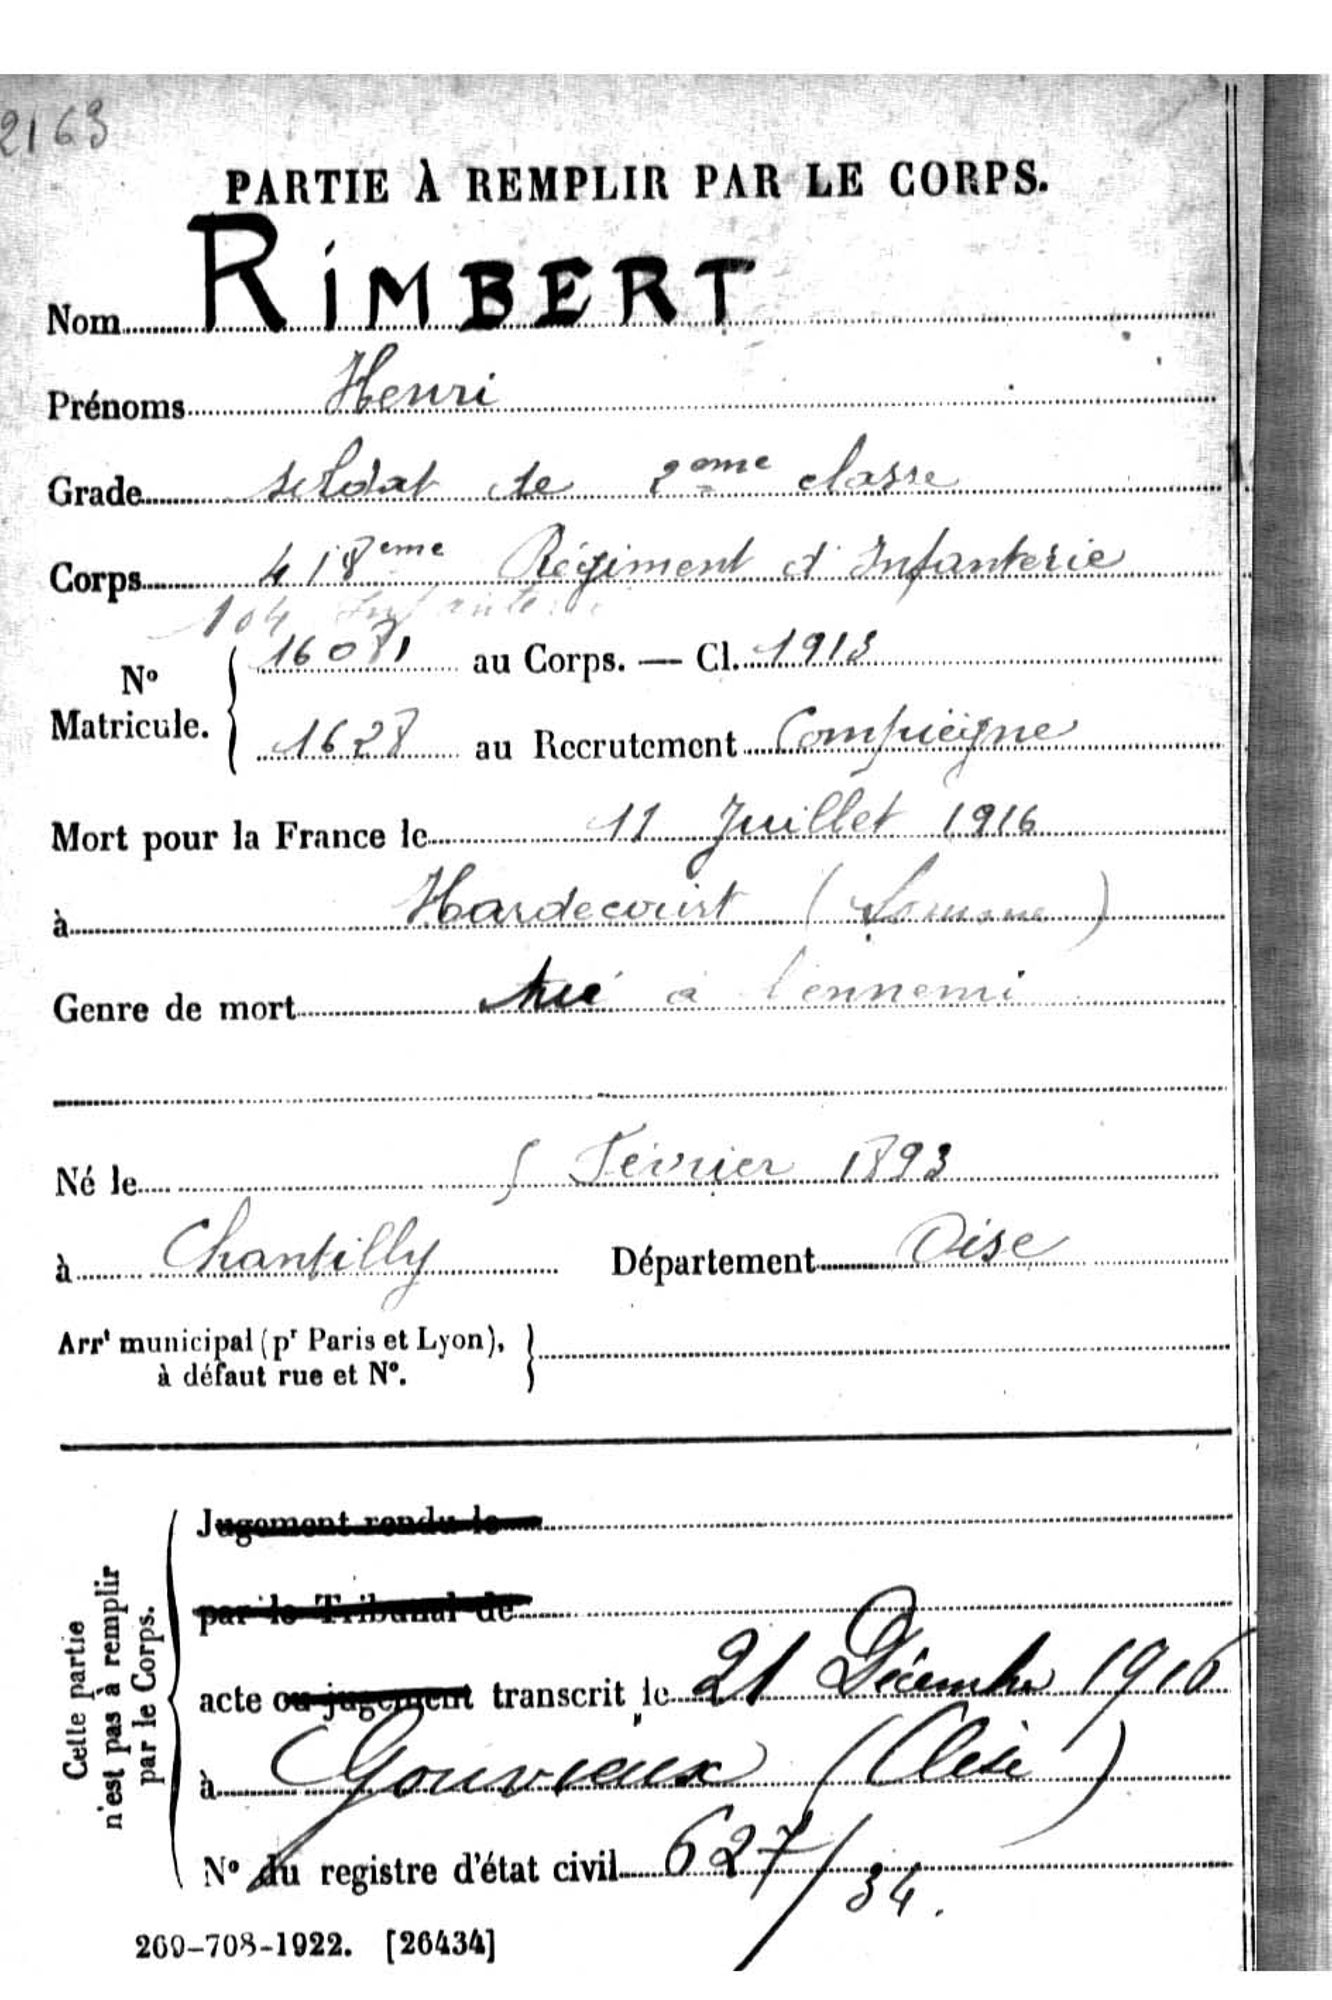 2163
PARTIE À REMPLIR PAR LE CORPS.
Nom RIMBERT
Prénoms Henri
Grade soldat de 2eme classe
Corps 418eme Régiment d'Infanterie
104 Infanterie
No Matricule. { 16071 au Corps. — Cl. 1913
1628 au Recrutement Compiègne
Mort pour la France le 11 Juillet 1916
à Hardecourt (Somme)
Genre de mort tué à l'ennemi
Né le 5 Février 1893
à Chantilly Département Oise
Arrt municipal (pr Paris et Lyon), }
à défaut rue et No.
Cette partie
n'est pas à remplir
par le Corps.
Jugement rendu le
par le Tribunal de
acte ou jugement transcrit le 21 Décembre 1916
à Gouvieux (Oise)
No du registre d'état civil 627/34.
269-708-1922. [26434]